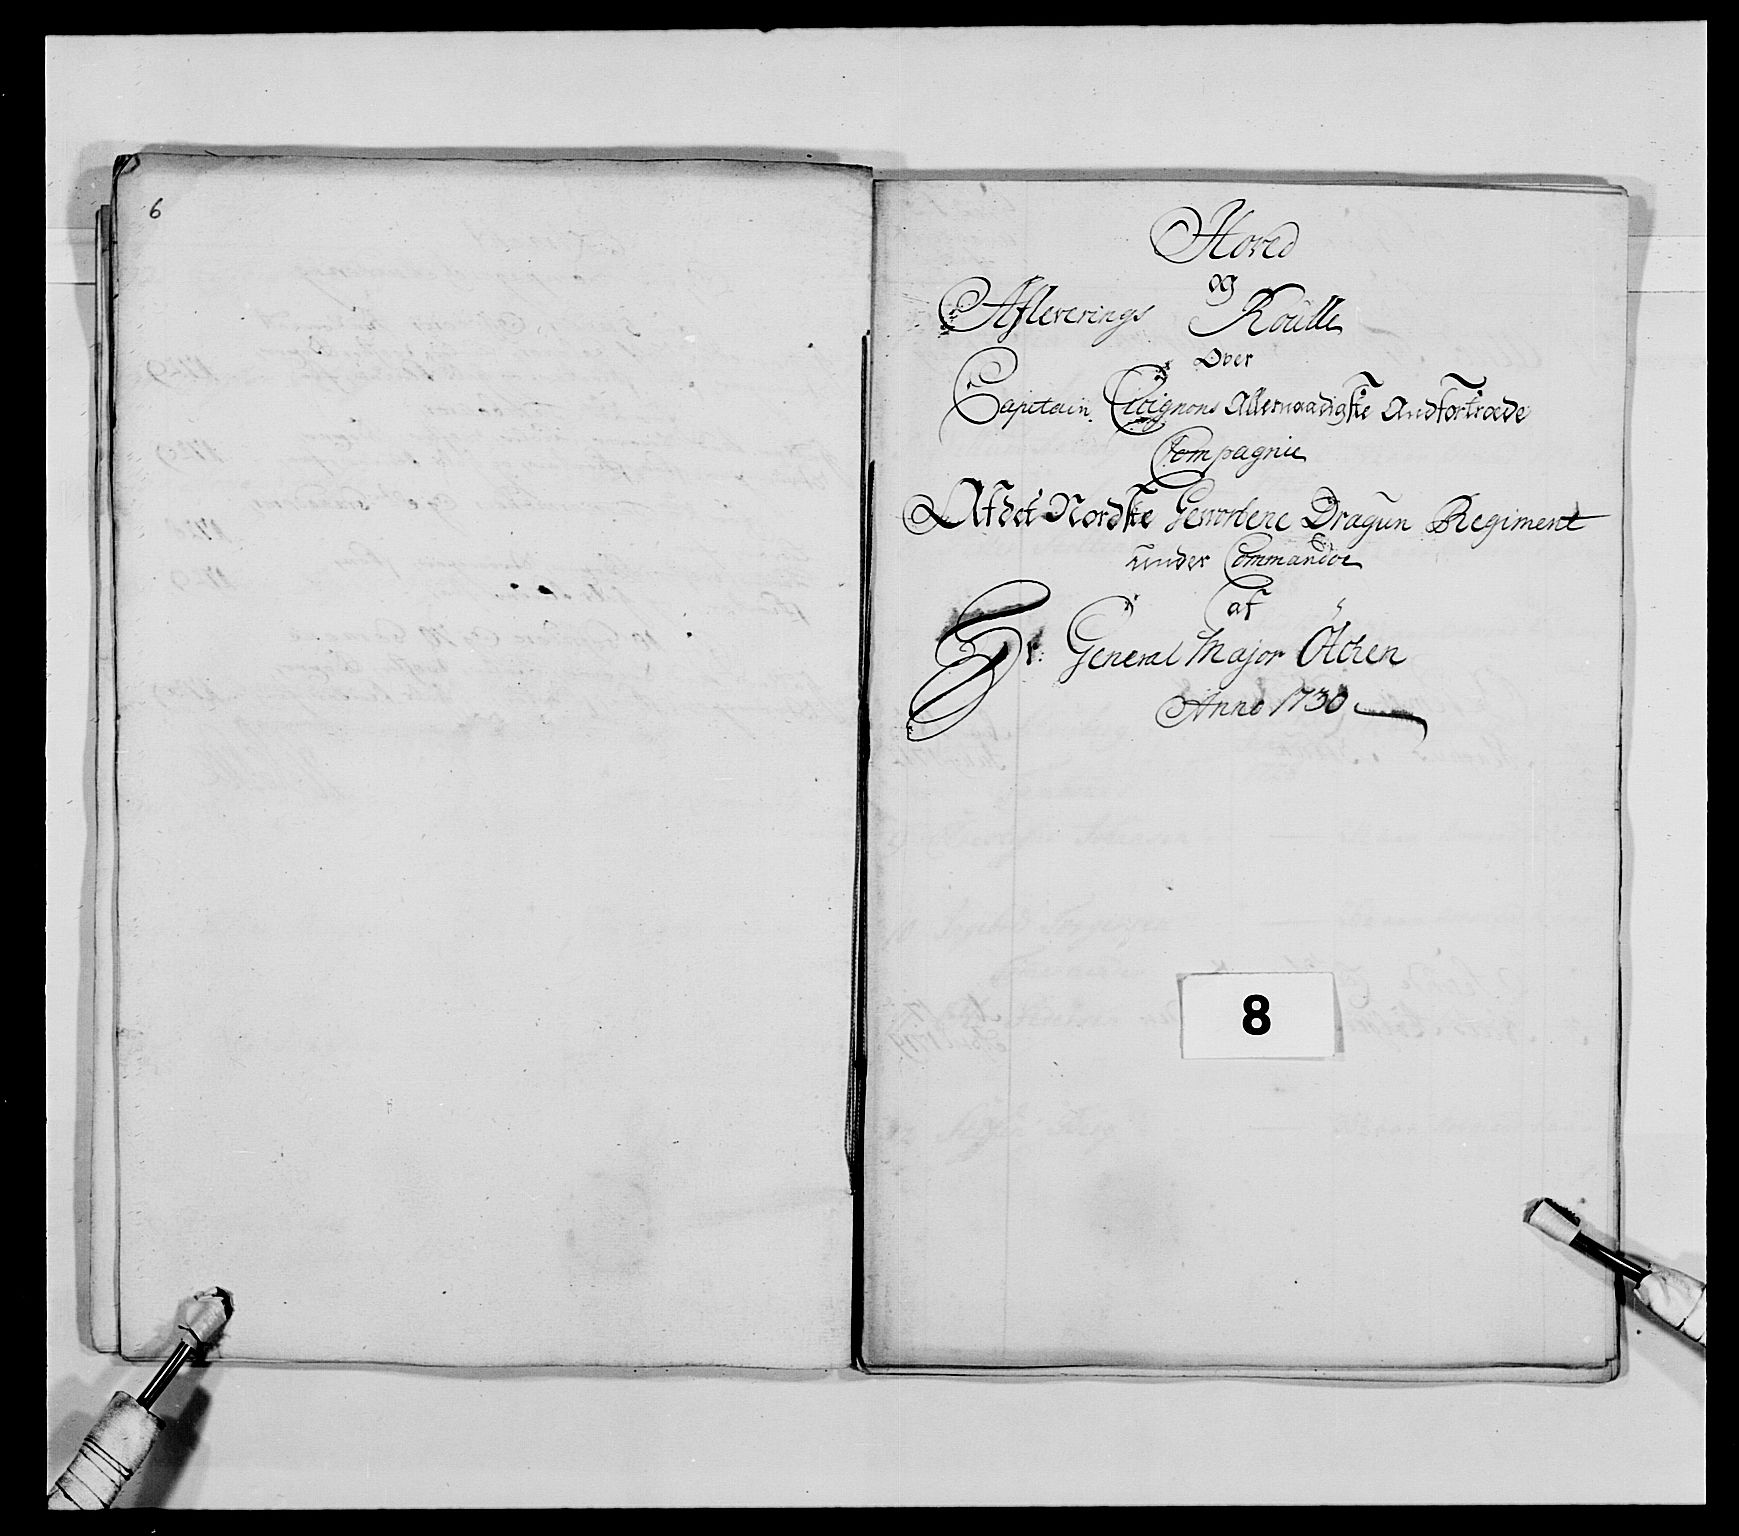 6
Hoved
og
Afleverings Roulle
Over
Capitain Cicignons Allernaadigste Andfortroede
Compagnie
Af det Nordske Geworbene Dragun Regiment
under Commandoe
af
Hr: General Major Ötken
Anno 1730
8